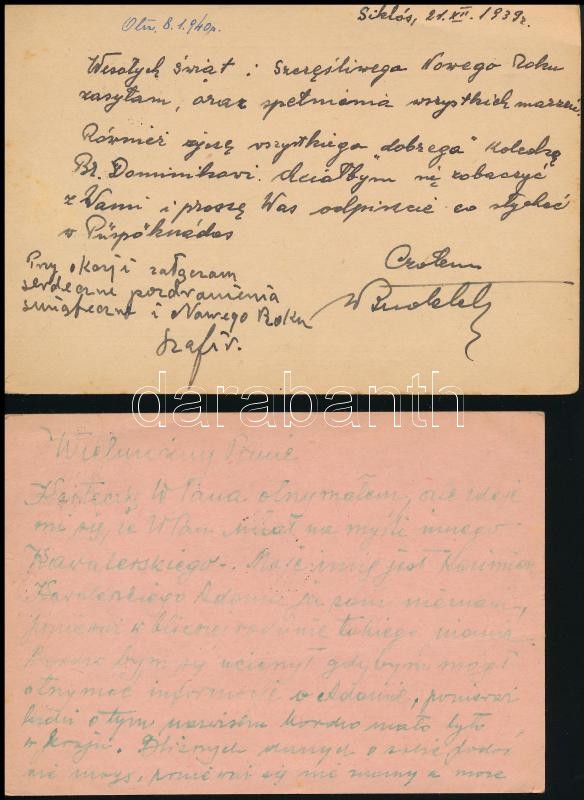 Siklós, 21.XII.1939r.
Otrz. 8.1.940r.
Wesołych Świąt i Szczęśliwego Nowego Roku
zasyłam, oraz spełnienia wszystkich marzeń.
Również życzę wszystkiego dobrego koledze
Br. Dominikowi. Chciałbym się zobaczyć
z Wami i proszę Was odpiszcie co słychać
w Püspöknádas
Czołem
Przy okazji załączam
serdeczne pozdrowienia
świąteczne i Nowego Roku
darabanth
Wielmożny Panie
Karteczkę W Pana otrzymałem, ale zdaje
mi się, że W Pan miał na myśli innego
Kawalerskiego. Moje imię jest Kazimierz
Kawalerskiego Adama ja sam nieznam,
ponieważ w bliższej rodzinie takiego niema.
Bardzo bym się ucieszył gdybym mógł
otrzymać informacje o Adamie, ponieważ
ludzi o tym nazwisku bardzo mało było
w kraju. Bliższych danych o sobie podać
nie mogę, ponieważ się nie znamy a może